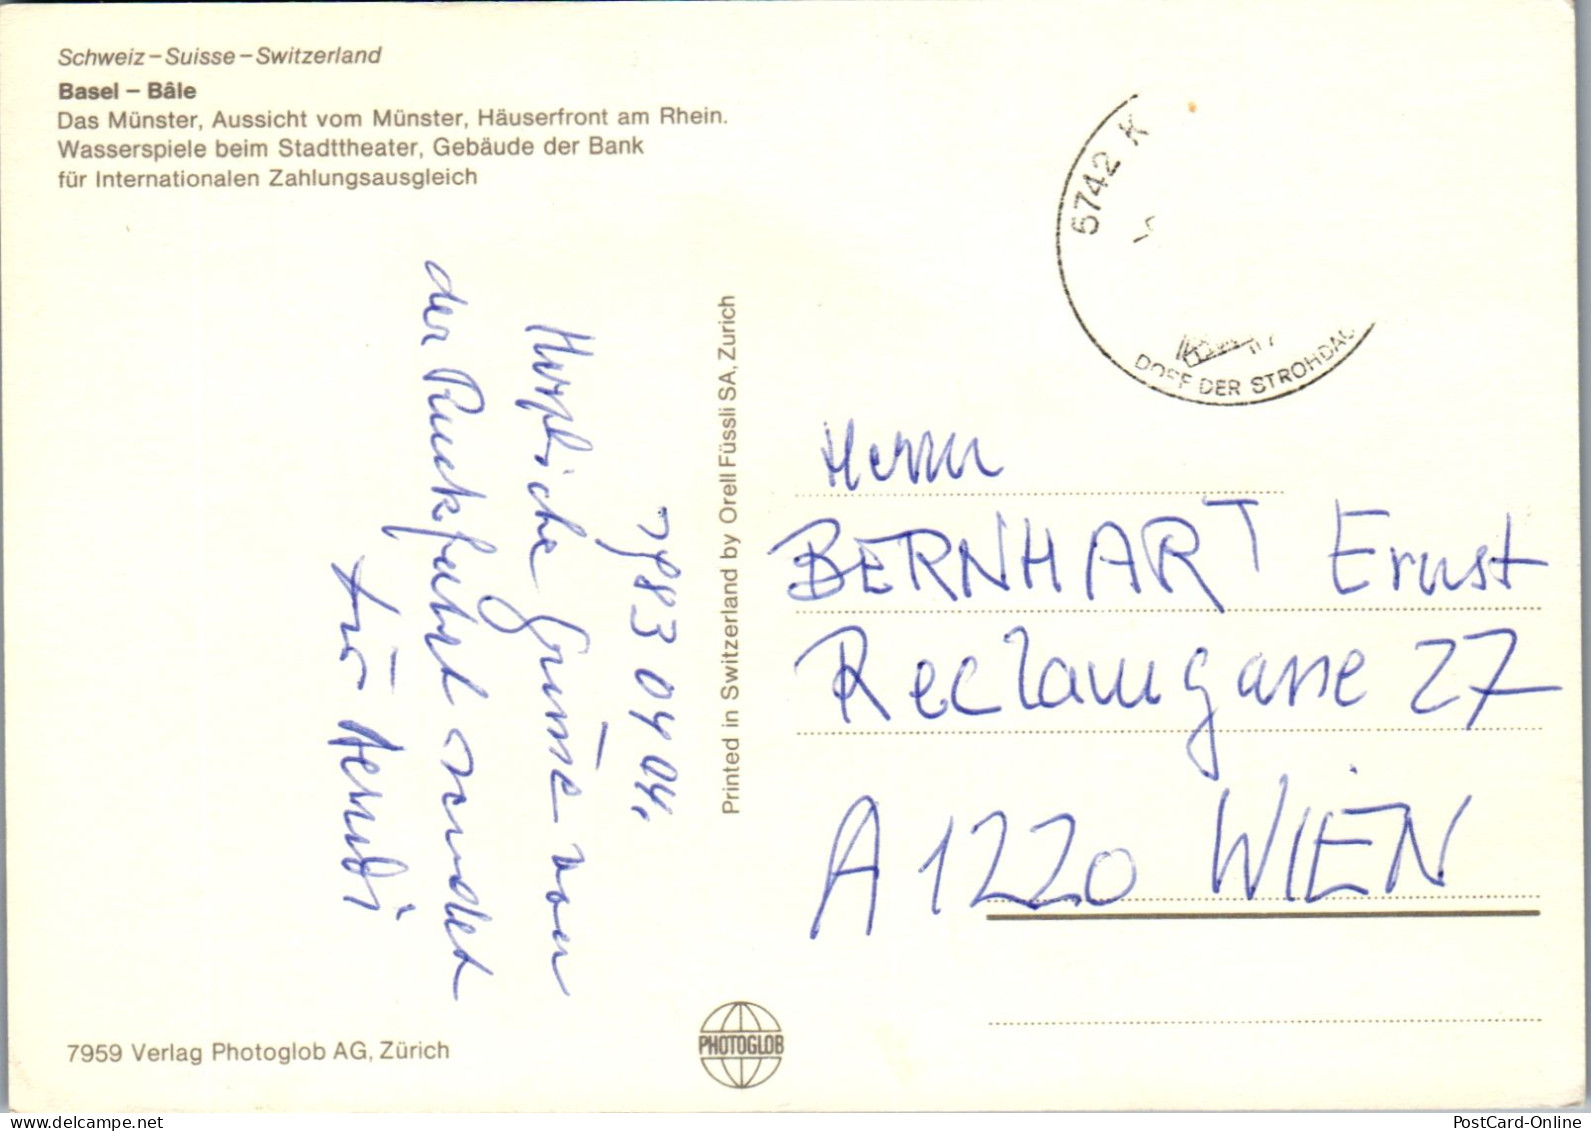 Schweiz – Suisse – Switzerland
Basel – Bâle
Das Münster, Aussicht vom Münster, Häuserfront am Rhein.
Wasserspiele beim Stadttheater, Gebäude der Bank
für Internationalen Zahlungsausgleich
5742 K
DORF DER STROHDAC
1983 04 04.
Herzliche Grüsse von
der Rückfahrt sendet
für
Printed in Switzerland by Orell Füssli SA, Zurich
Herrn
BERNHART Ernst
Reclamgasse 27
A 1220 WIEN
7959 Verlag Photoglob AG, Zürich
PHOTOGLOB
PostCard-Online